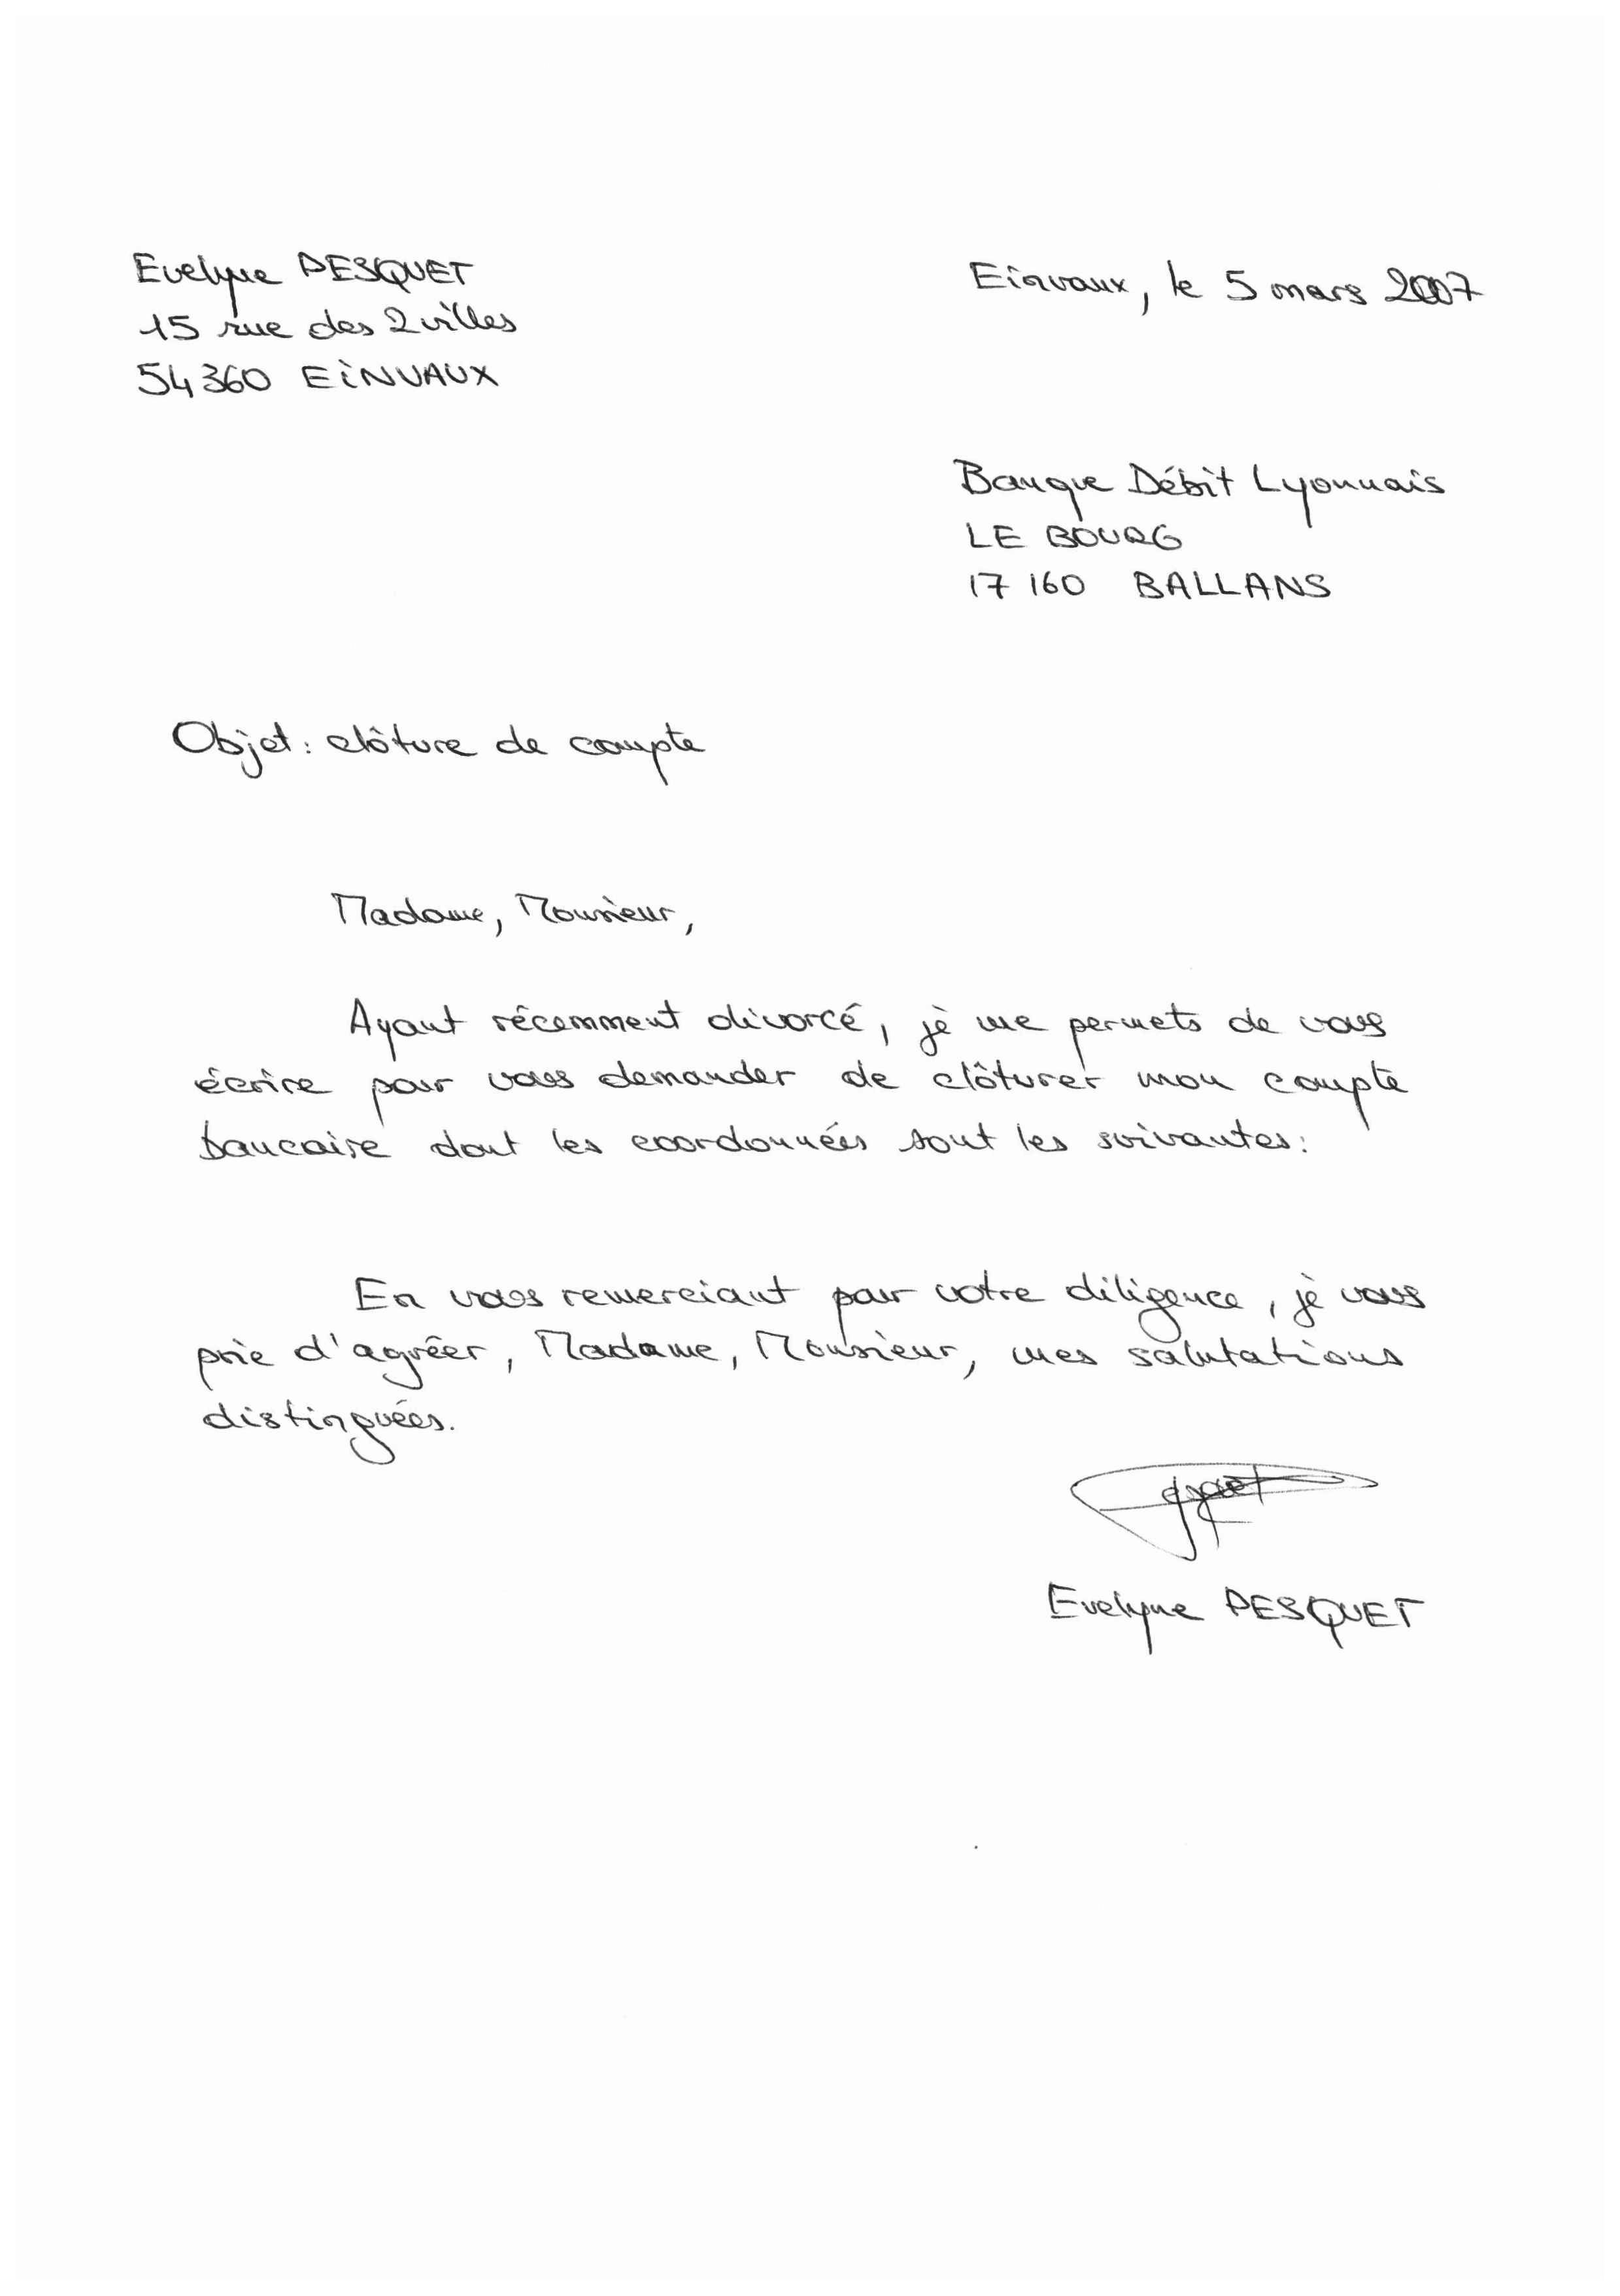 Evelyne PESQUET
15 rue des 2 villes
54360 EINVAUX
Einvaux, le 5 mars 2007
Banque Débit Lyonnais
LE BOURG
17 160 BALLANS
Objet : clôture de compte
Madame, Monsieur,
Ayant récemment divorcé, je me permets de vous
écrire pour vous demander de clôturer mon compte
bancaire dont les coordonnées sont les suivantes :
En vous remerciant pour votre diligence, je vous
prie d'agréer, Madame, Monsieur, mes salutations
distinguées.
Evelyne PESQUET